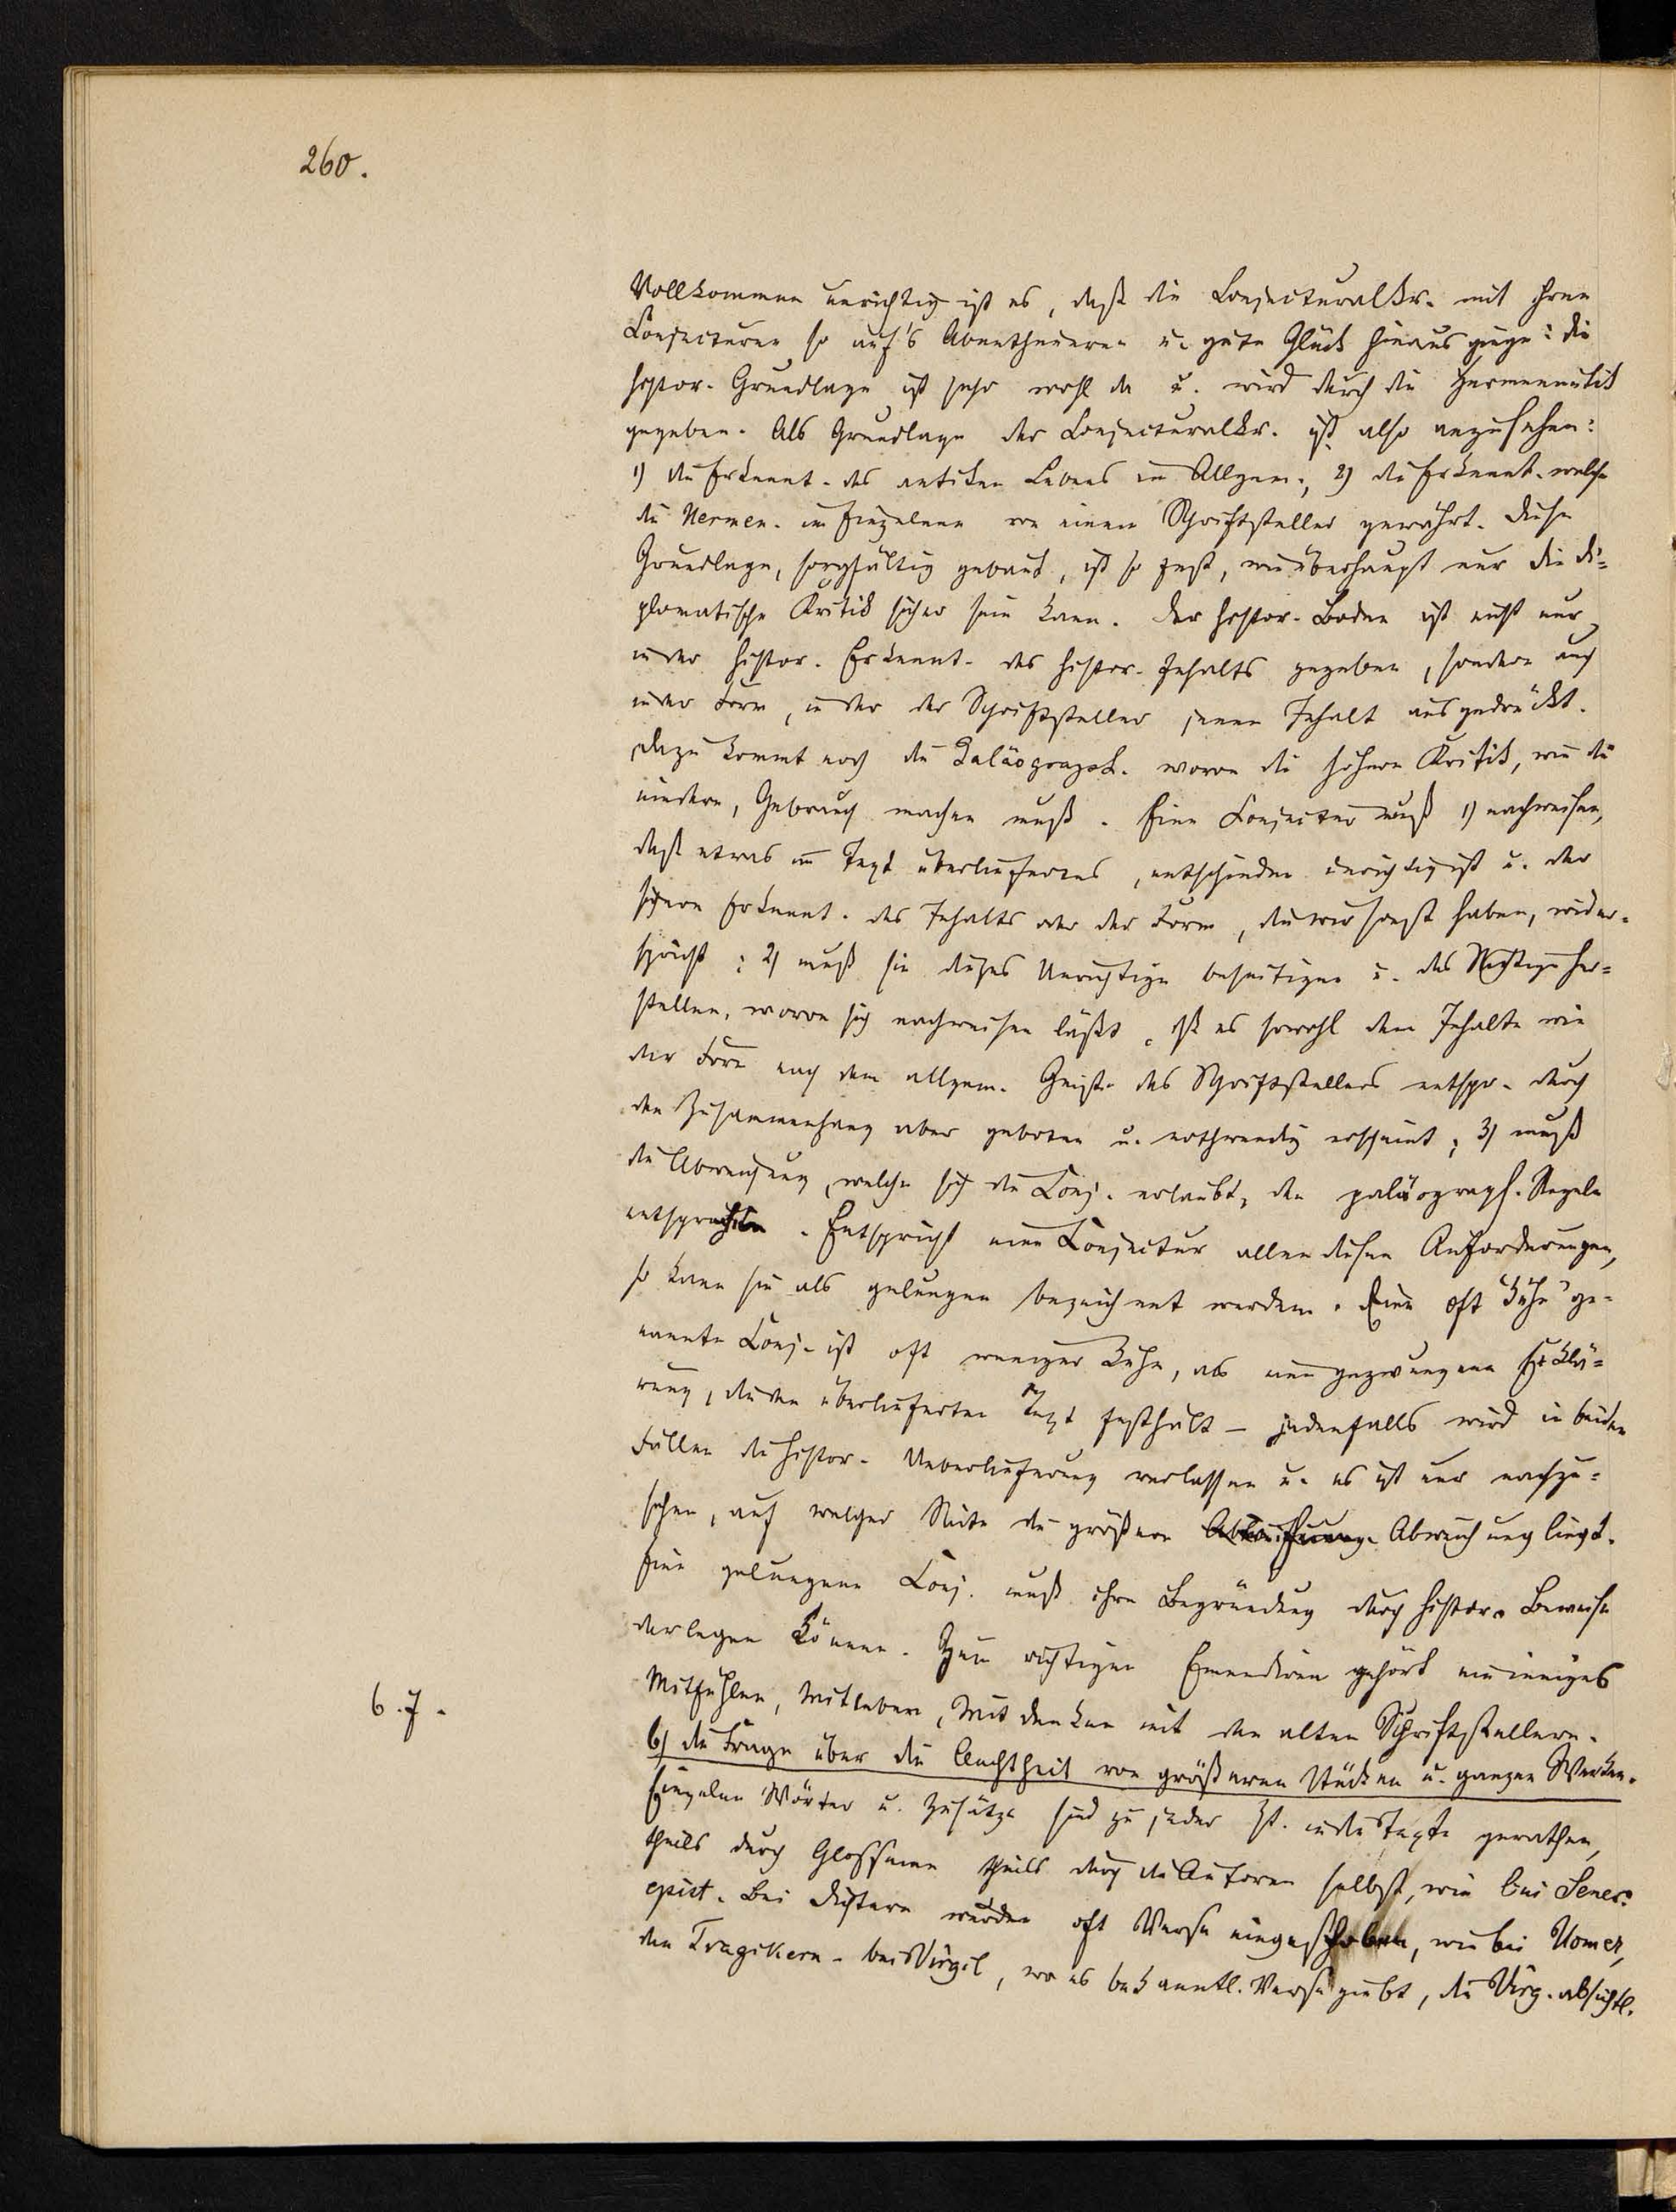 260.
Vollkommen unrichtig ist es, daß die Conjecturalkr. mit ihren
Conjecturen so auf's Abentheuern u. gute Glück hinaus ginge: die
histor. Grundlage ist sehr wohl da u. wird durch die Hermeneutik
gegeben. Als Grundlage der Conjecturalkr. ist also anzusehen:
1) die Erkennt. des antiken Lebens im Allgem., 2) die Erkennt. welche
die Hermen. im Einzelnen von einem Schriftsteller gewährt. Diese
Grundlage, sorgfältig gebaut, ist so fest, wie überhaupt nur die di=
plomatische Kritik sicher sein kann. Der histor. Boden ist nicht nur
in der histor. Erkennt. des histor. Inhalts gegeben, sondern auch
in der Form, in der der Schriftsteller jenen Inhalt ausgedrückt.
Dazu kommt noch die Paläograph. wovon die höhere Kritik, wie die
niedere, Gebrauch machen muß. Eine Conjectur muß 1) nachweisen,
daß etwas im Text überliefertes, entschieden unrichtig ist u. der
sichern Erkennt. des Inhalts oder der Form, die wir sonst haben, wider=
spricht; 2) muß sie dieses Unrichtige beseitigen u. das Richtige her=
stellen, wovon sich nachweisen läßt, daß es sowohl dem Inhalte wie
der Form nach dem allgem. Geiste des Schriftstellers entspr. durch
den Zusammenhang aber geboten u. nothwendig erscheint; 3) muß
die Abweichung, welche sich die Conj. erlaubt, den paläograph. Regeln
entsprechen. Entspricht eine Conjectur allen diesen Anforderungen,
so kann sie als gelungen bezeichnet werden. Eine oft "kühn" ge=
nannte Conj. ist oft weniger kühn, als eine gezwungene Erklä=
rung, die den überlieferten Text festhält – jedenfalls wird in beiden
Fällen die histor. Ueberlieferung verlassen u. es ist nur nachzu=
sehen, auf welcher Seite die größere Abweichung liegt.
Eine gelungene Conj. muß ihre Begründung durch histor. Beweise
darlegen können. Zum richtigen Emendiren gehört ein inniges
Mitfühlen, Mitleben, Mitdenken mit den alten Schriftstellern.
6.7.
b) die Frage über die Aechtheit von größeren Stücken u. ganzen Werken.
Einzelne Wörter u. Zusätze sind zu jeder Zt. in die Texte gerathen,
theils durch Glosseme theils durch die Autoren selbst, wie bei Senec.
epist. Bei Dichtern wurden oft Verse eingeschoben, wie bei Homer,
den Tragikern. bei Virgil, wo es bekanntl. Verse giebt, die Virg. absichtl.